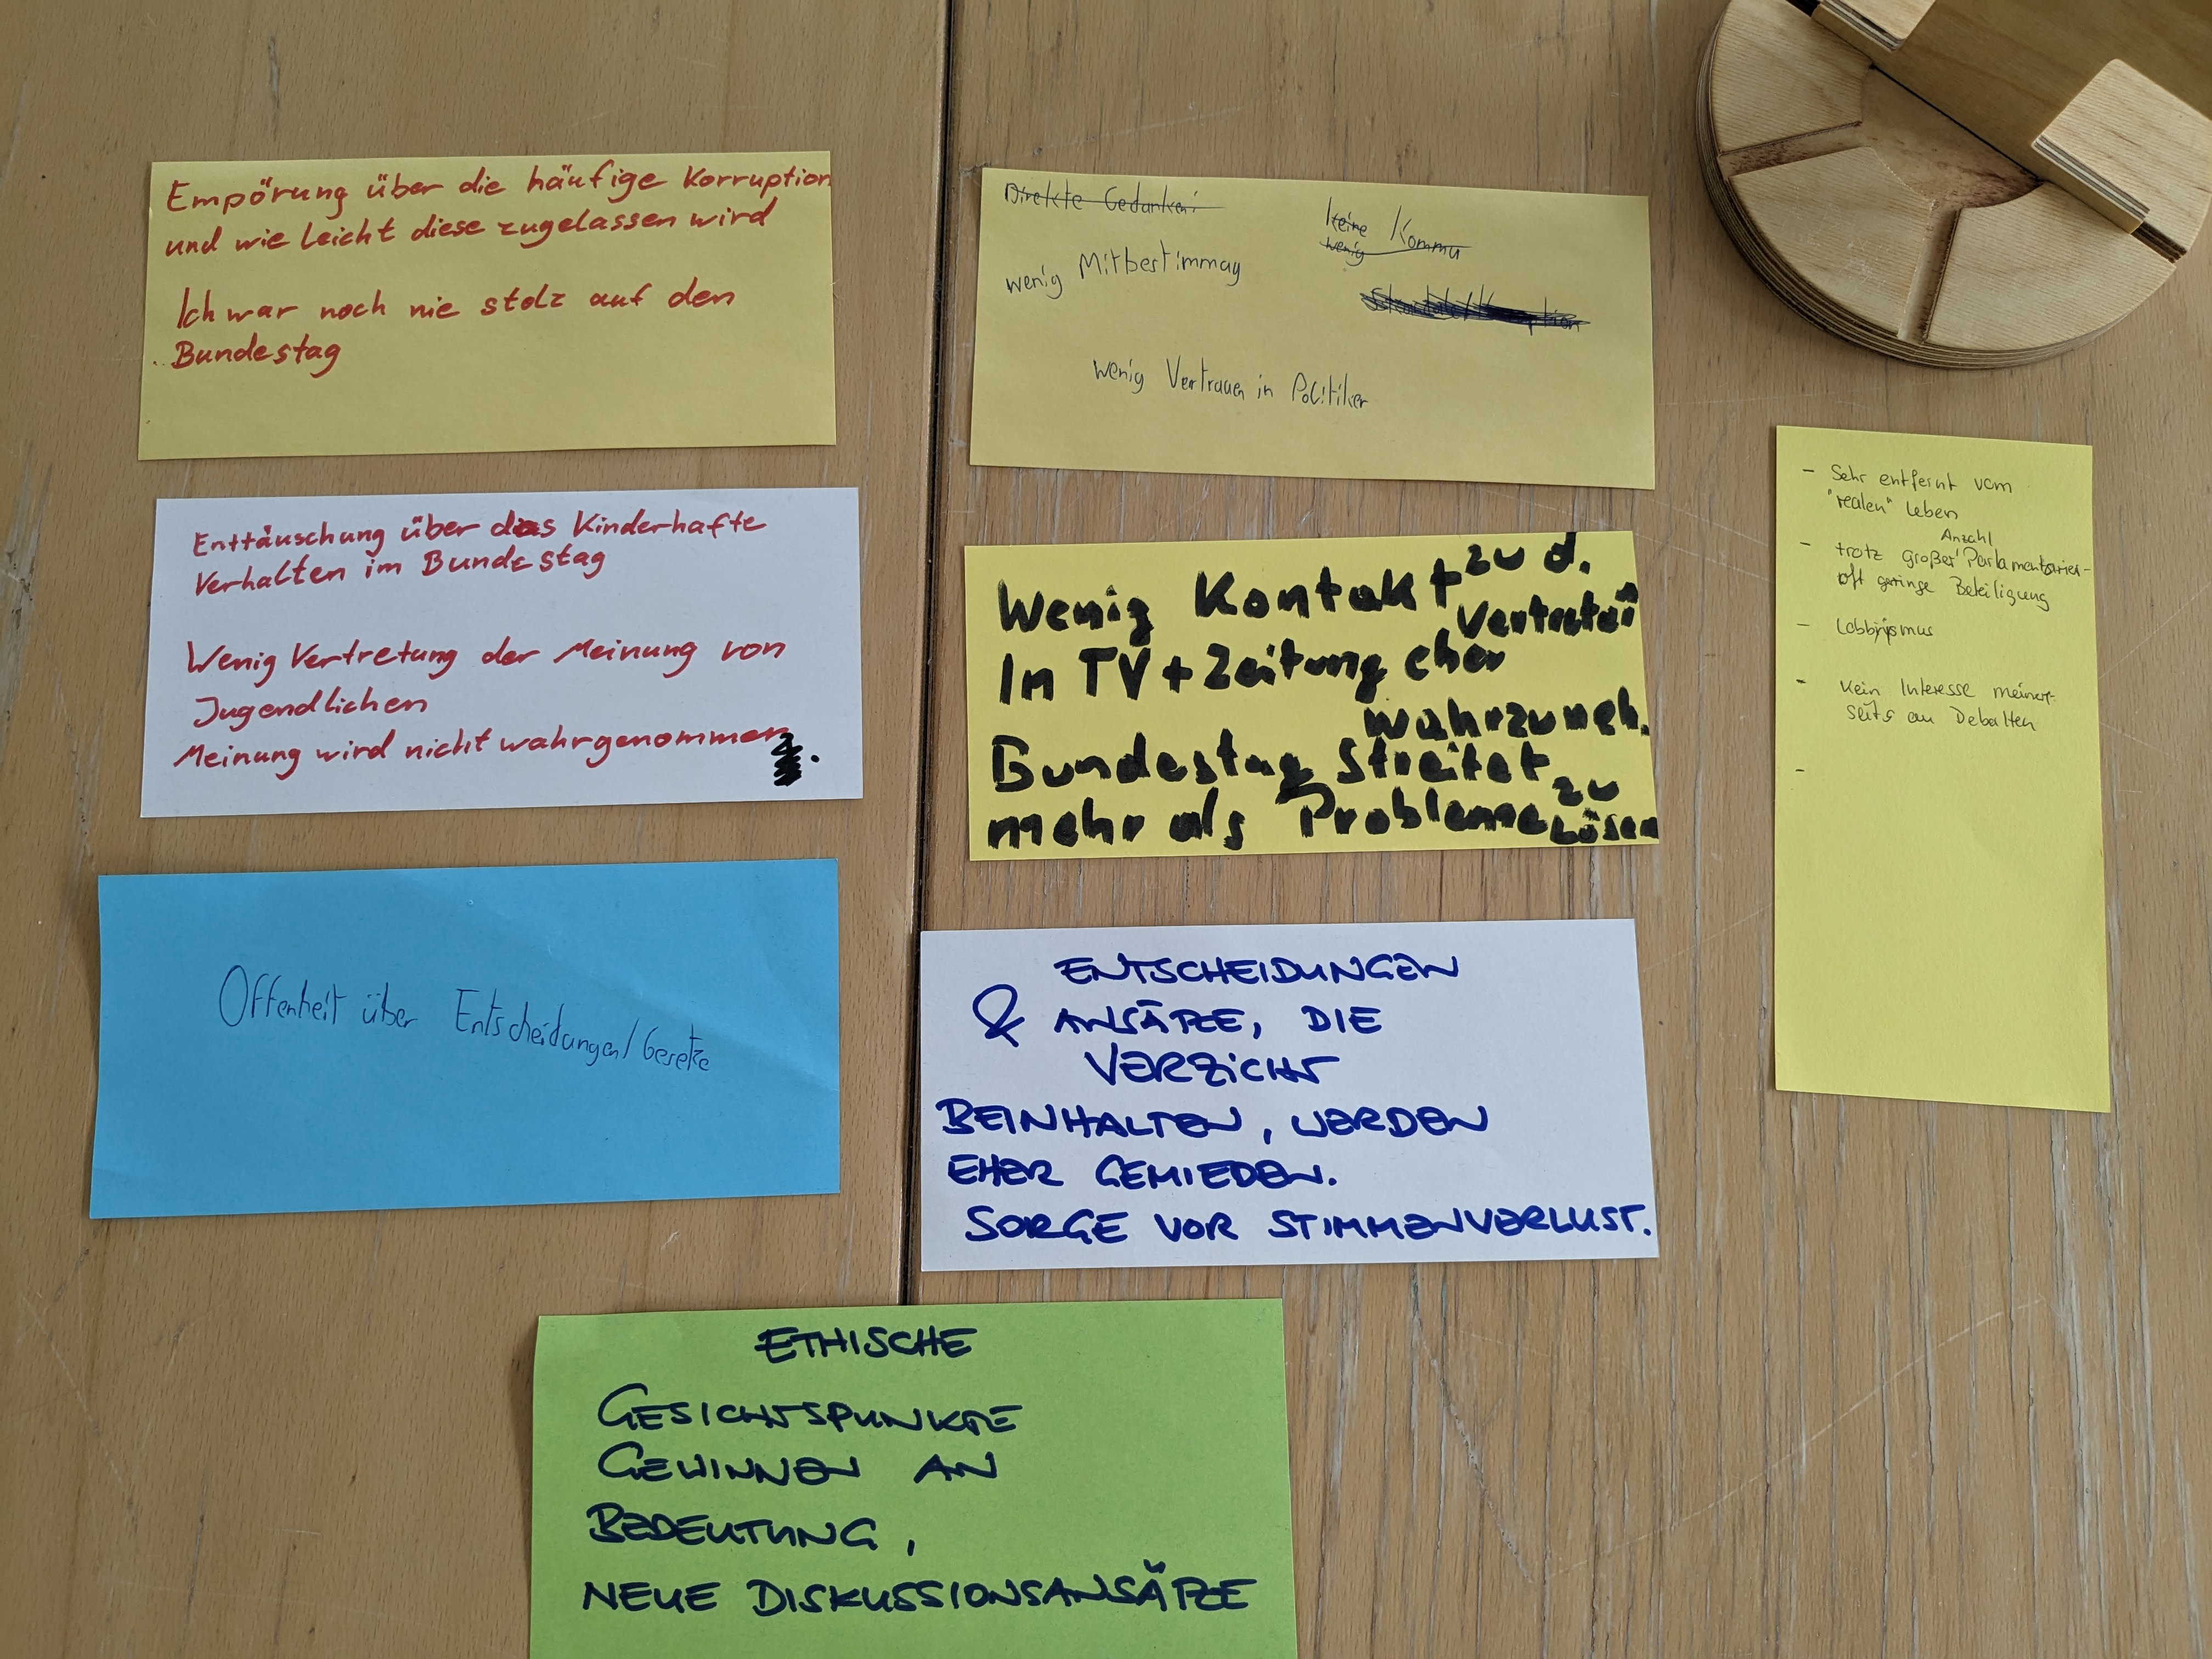 Empörung über die häufige Korruption
und wie leicht diese zugelassen wird
Ich war noch nie stolz auf den
Bundestag
Enttäuschung über das Kinderhafte
Verhalten im Bundestag
Wenig Vertretung der Meinung von
Jugendlichen
Meinung wird nicht wahrgenommen.
Offenheit über Entscheidungen/Gesetze
Direkte Gedanken:
keine Kommu
wenig
wenig Mitbestimmug
wenig Vertrauen in Politiker
Wenig Kontakt zu d.
In TV + Zeitung eher
wahrzuneh.
Bundestag streitet
mehr als Probleme zu lösen
ENTSCHEIDUNGEN
& ANSÄTZE, DIE
VERZICHT
BEINHALTEN, WERDEN
EHER GEMIEDEN.
SORGE VOR STIMMENVERLUST.
ETHISCHE
GESICHTSPUNKTE
GEWINNEN AN
BEDEUTUNG,
NEUE DISKUSSIONSANSÄTZE
- Sehr entfernt vom
"realen" Leben
Anzahl
- trotz großer Parlamentarier-
oft geringe Beteiligung
- Lobbyismus
- Kein Interesse meiner-
seits an Debatten
-